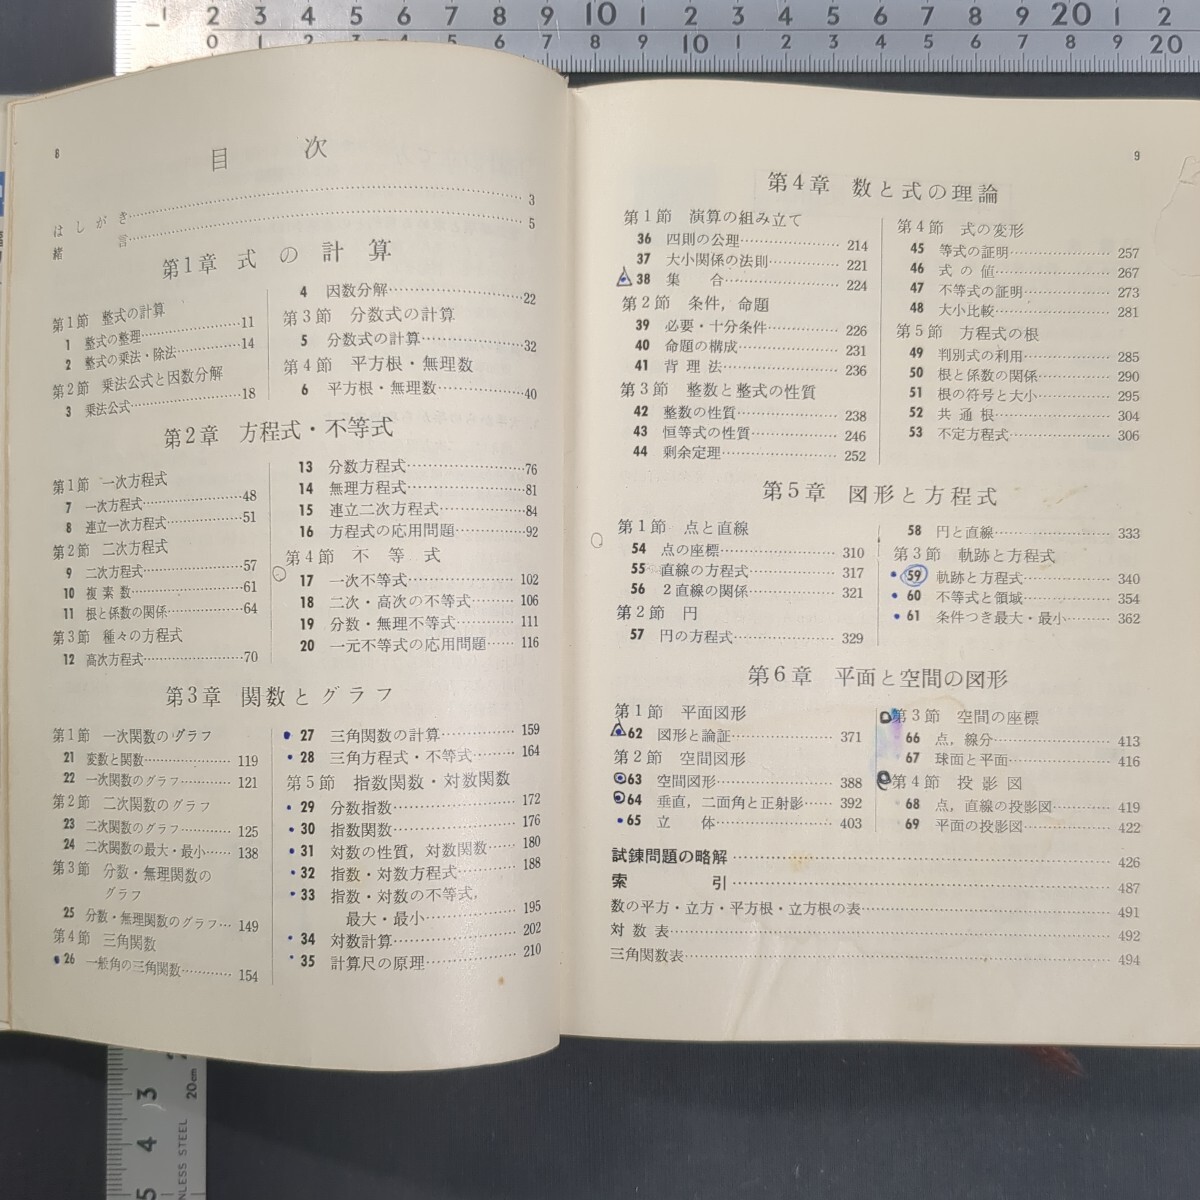 8
目 次
はしがき……3
緒 言……5
第1章 式の計算
第1節 整式の計算
1 整式の整理……11
2 整式の乗法・除法……14
第2節 乗法公式と因数分解
3 乗法公式……18
4 因数分解……22
第3節 分数式の計算
5 分数式の計算……32
第4節 平方根・無理数
6 平方根・無理数……40
第2章 方程式・不等式
第1節 一次方程式
7 一次方程式……48
8 連立一次方程式……51
第2節 二次方程式
9 二次方程式……57
10 複素数……61
11 根と係数の関係……64
第3節 種々の方程式
12 高次方程式……70
13 分数方程式……76
14 無理方程式……81
15 連立二次方程式……84
16 方程式の応用問題……92
第4節 不等式
17 一次不等式……102
18 二次・高次の不等式……106
19 分数・無理不等式……111
20 一元不等式の応用問題……116
第3章 関数とグラフ
第1節 一次関数のグラフ
21 変数と関数……119
22 一次関数のグラフ……121
第2節 二次関数のグラフ
23 二次関数のグラフ……125
24 二次関数の最大・最小……138
第3節 分数・無理関数の
グラフ
25 分数・無理関数のグラフ…149
第4節 三角関数
26 一般角の三角関数……154
27 三角関数の計算……159
28 三角方程式・不等式……164
第5節 指数関数・対数関数
29 分数指数……172
30 指数関数……176
31 対数の性質，対数関数……180
32 指数・対数方程式……188
33 指数・対数の不等式，
最大・最小……195
34 対数計算……202
35 計算尺の原理……210
9
第4章 数と式の理論
第1節 演算の組み立て
36 四則の公理……214
37 大小関係の法則……221
38 集 合……224
第2節 条件，命題
39 必要・十分条件……226
40 命題の構成……231
41 背理法……236
第3節 整数と整式の性質
42 整数の性質……238
43 恒等式の性質……246
44 剰余定理……252
第4節 式の変形
45 等式の証明……257
46 式の値……267
47 不等式の証明……273
48 大小比較……281
第5節 方程式の根
49 判別式の利用……285
50 根と係数の関係……290
51 根の符号と大小……295
52 共通根……304
53 不定方程式……306
第5章 図形と方程式
第1節 点と直線
54 点の座標……310
55 直線の方程式……317
56 2直線の関係……321
第2節 円
57 円の方程式……329
58 円と直線……333
第3節 軌跡と方程式
59 軌跡と方程式……340
60 不等式と領域……354
61 条件つき最大・最小……362
第6章 平面と空間の図形
第1節 平面図形
62 図形と論証……371
第2節 空間図形
63 空間図形……388
64 垂直，二面角と正射影……392
65 立 体……403
第3節 空間の座標
66 点，線分……413
67 球面と平面……416
第4節 投影図
68 点，直線の投影図……419
69 平面の投影図……422
試錬問題の略解……426
索 引……487
数の平方・立方・平方根・立方根の表……491
対数表……492
三角関数表……494